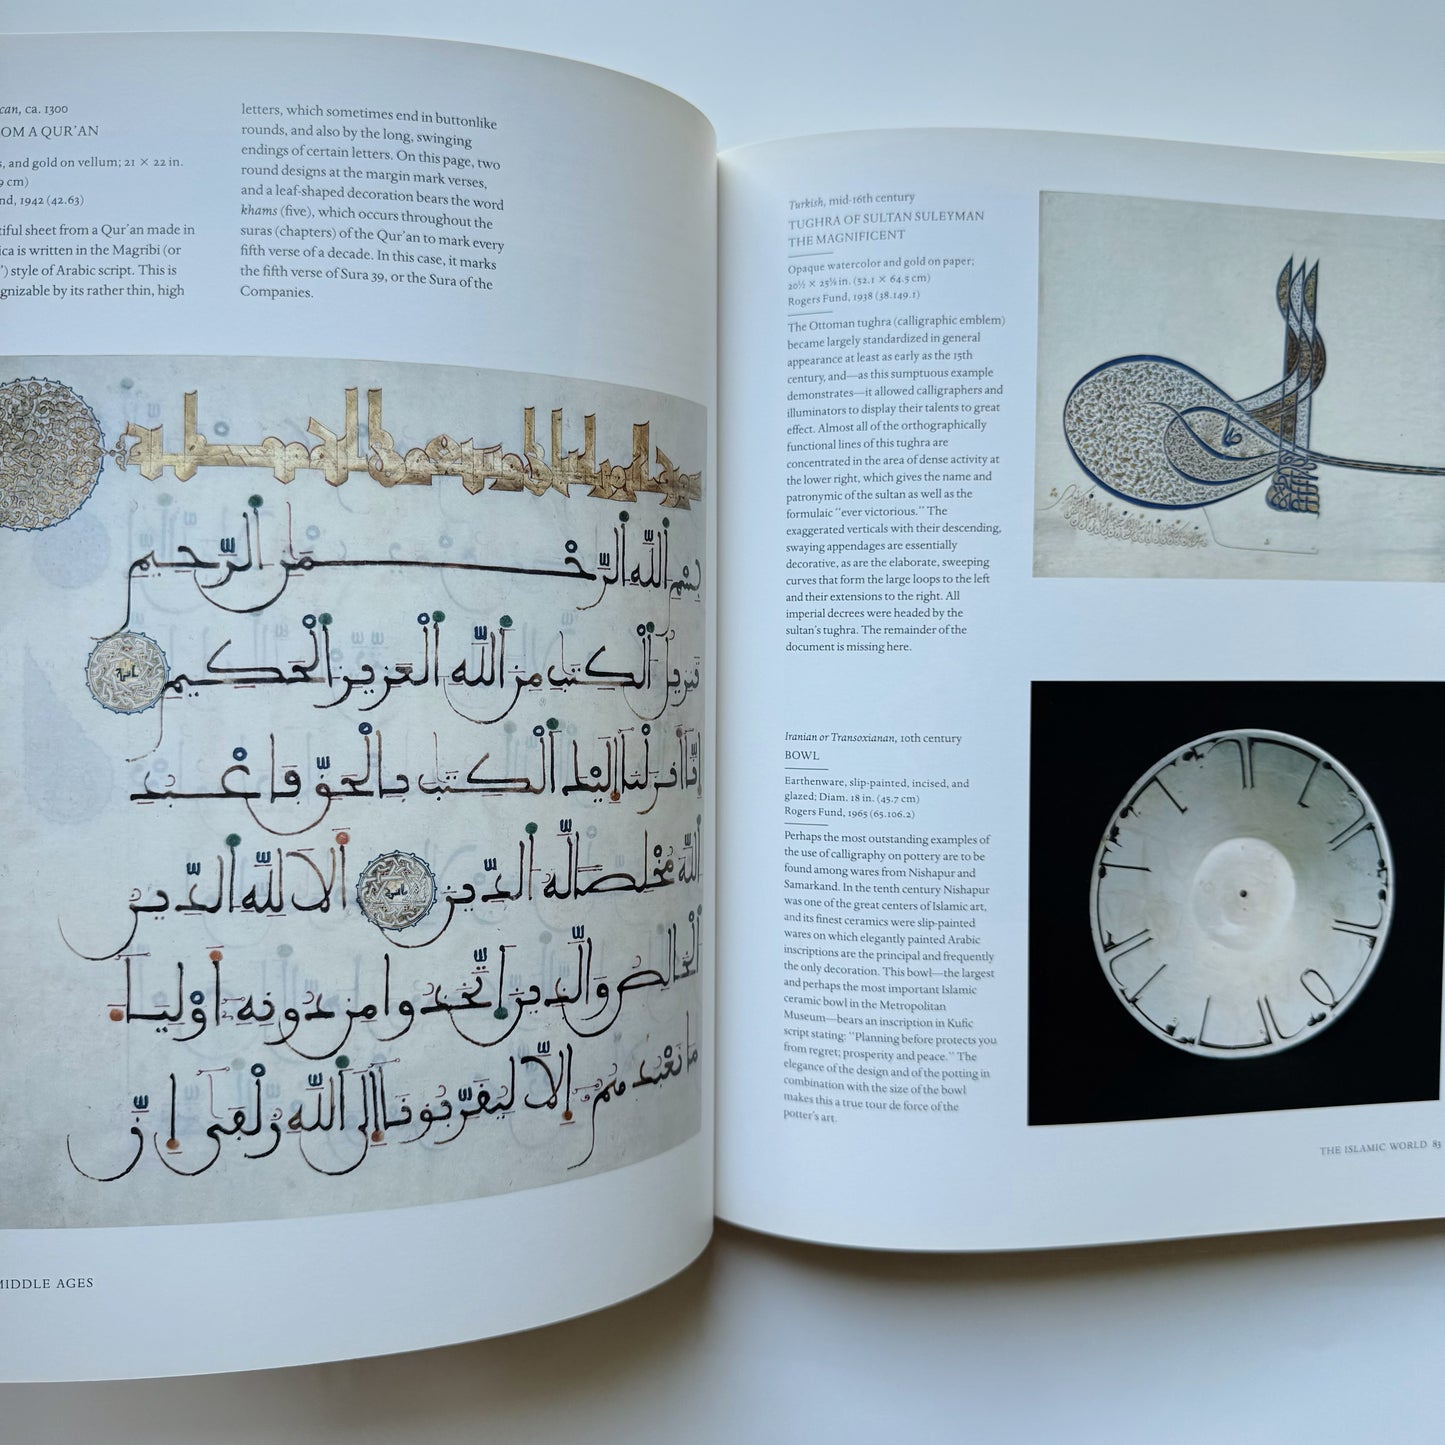 can, ca. 1300
OM A QUR’AN
s, and gold on vellum; 21 × 22 in.
9 cm)
nd, 1942 (42.63)
tiful sheet from a Qur’an made in
ica is written in the Magribi (or
’) style of Arabic script. This is
gnizable by its rather thin, high
letters, which sometimes end in buttonlike
rounds, and also by the long, swinging
endings of certain letters. On this page, two
round designs at the margin mark verses,
and a leaf-shaped decoration bears the word
khams (five), which occurs throughout the
suras (chapters) of the Qur’an to mark every
fifth verse of a decade. In this case, it marks
the fifth verse of Sura 39, or the Sura of the
Companies.
بِسْمِ اللَّهِ الرَّحْمَٰنِ الرَّحِيمِ
تَنزِيلُ الْكِتَٰبِ مِنَ اللَّهِ الْعَزِيزِ الْحَكِيمِ
إِنَّا أَنزَلْنَا إِلَيْكَ الْكِتَٰبَ بِالْحَقِّ فَاعْبُدِ
اللَّهَ مُخْلِصًا لَّهُ الدِّينَ أَلَا لِلَّهِ الدِّينُ
الْخَالِصُ وَالَّذِينَ اتَّخَذُوا مِن دُونِهِ أَوْلِيَاءَ
مَا نَعْبُدُهُمْ إِلَّا لِيُقَرِّبُونَا إِلَى اللَّهِ زُلْفَىٰ إِنَّ
MIDDLE AGES
Turkish, mid-16th century
TUGHRA OF SULTAN SULEYMAN
THE MAGNIFICENT
Opaque watercolor and gold on paper;
20½ × 25⅜ in. (52.1 × 64.5 cm)
Rogers Fund, 1938 (38.149.1)
The Ottoman tughra (calligraphic emblem)
became largely standardized in general
appearance at least as early as the 15th
century, and—as this sumptuous example
demonstrates—it allowed calligraphers and
illuminators to display their talents to great
effect. Almost all of the orthographically
functional lines of this tughra are
concentrated in the area of dense activity at
the lower right, which gives the name and
patronymic of the sultan as well as the
formulaic “ever victorious.” The
exaggerated verticals with their descending,
swaying appendages are essentially
decorative, as are the elaborate, sweeping
curves that form the large loops to the left
and their extensions to the right. All
imperial decrees were headed by the
sultan’s tughra. The remainder of the
document is missing here.
Iranian or Transoxianan, 10th century
BOWL
Earthenware, slip-painted, incised, and
glazed; Diam. 18 in. (45.7 cm)
Rogers Fund, 1965 (65.106.2)
Perhaps the most outstanding examples of
the use of calligraphy on pottery are to be
found among wares from Nishapur and
Samarkand. In the tenth century Nishapur
was one of the great centers of Islamic art,
and its finest ceramics were slip-painted
wares on which elegantly painted Arabic
inscriptions are the principal and frequently
the only decoration. This bowl—the largest
and perhaps the most important Islamic
ceramic bowl in the Metropolitan
Museum—bears an inscription in Kufic
script stating: “Planning before protects you
from regret; prosperity and peace.” The
elegance of the design and of the potting in
combination with the size of the bowl
makes this a true tour de force of the
potter’s art.
THE ISLAMIC WORLD 83